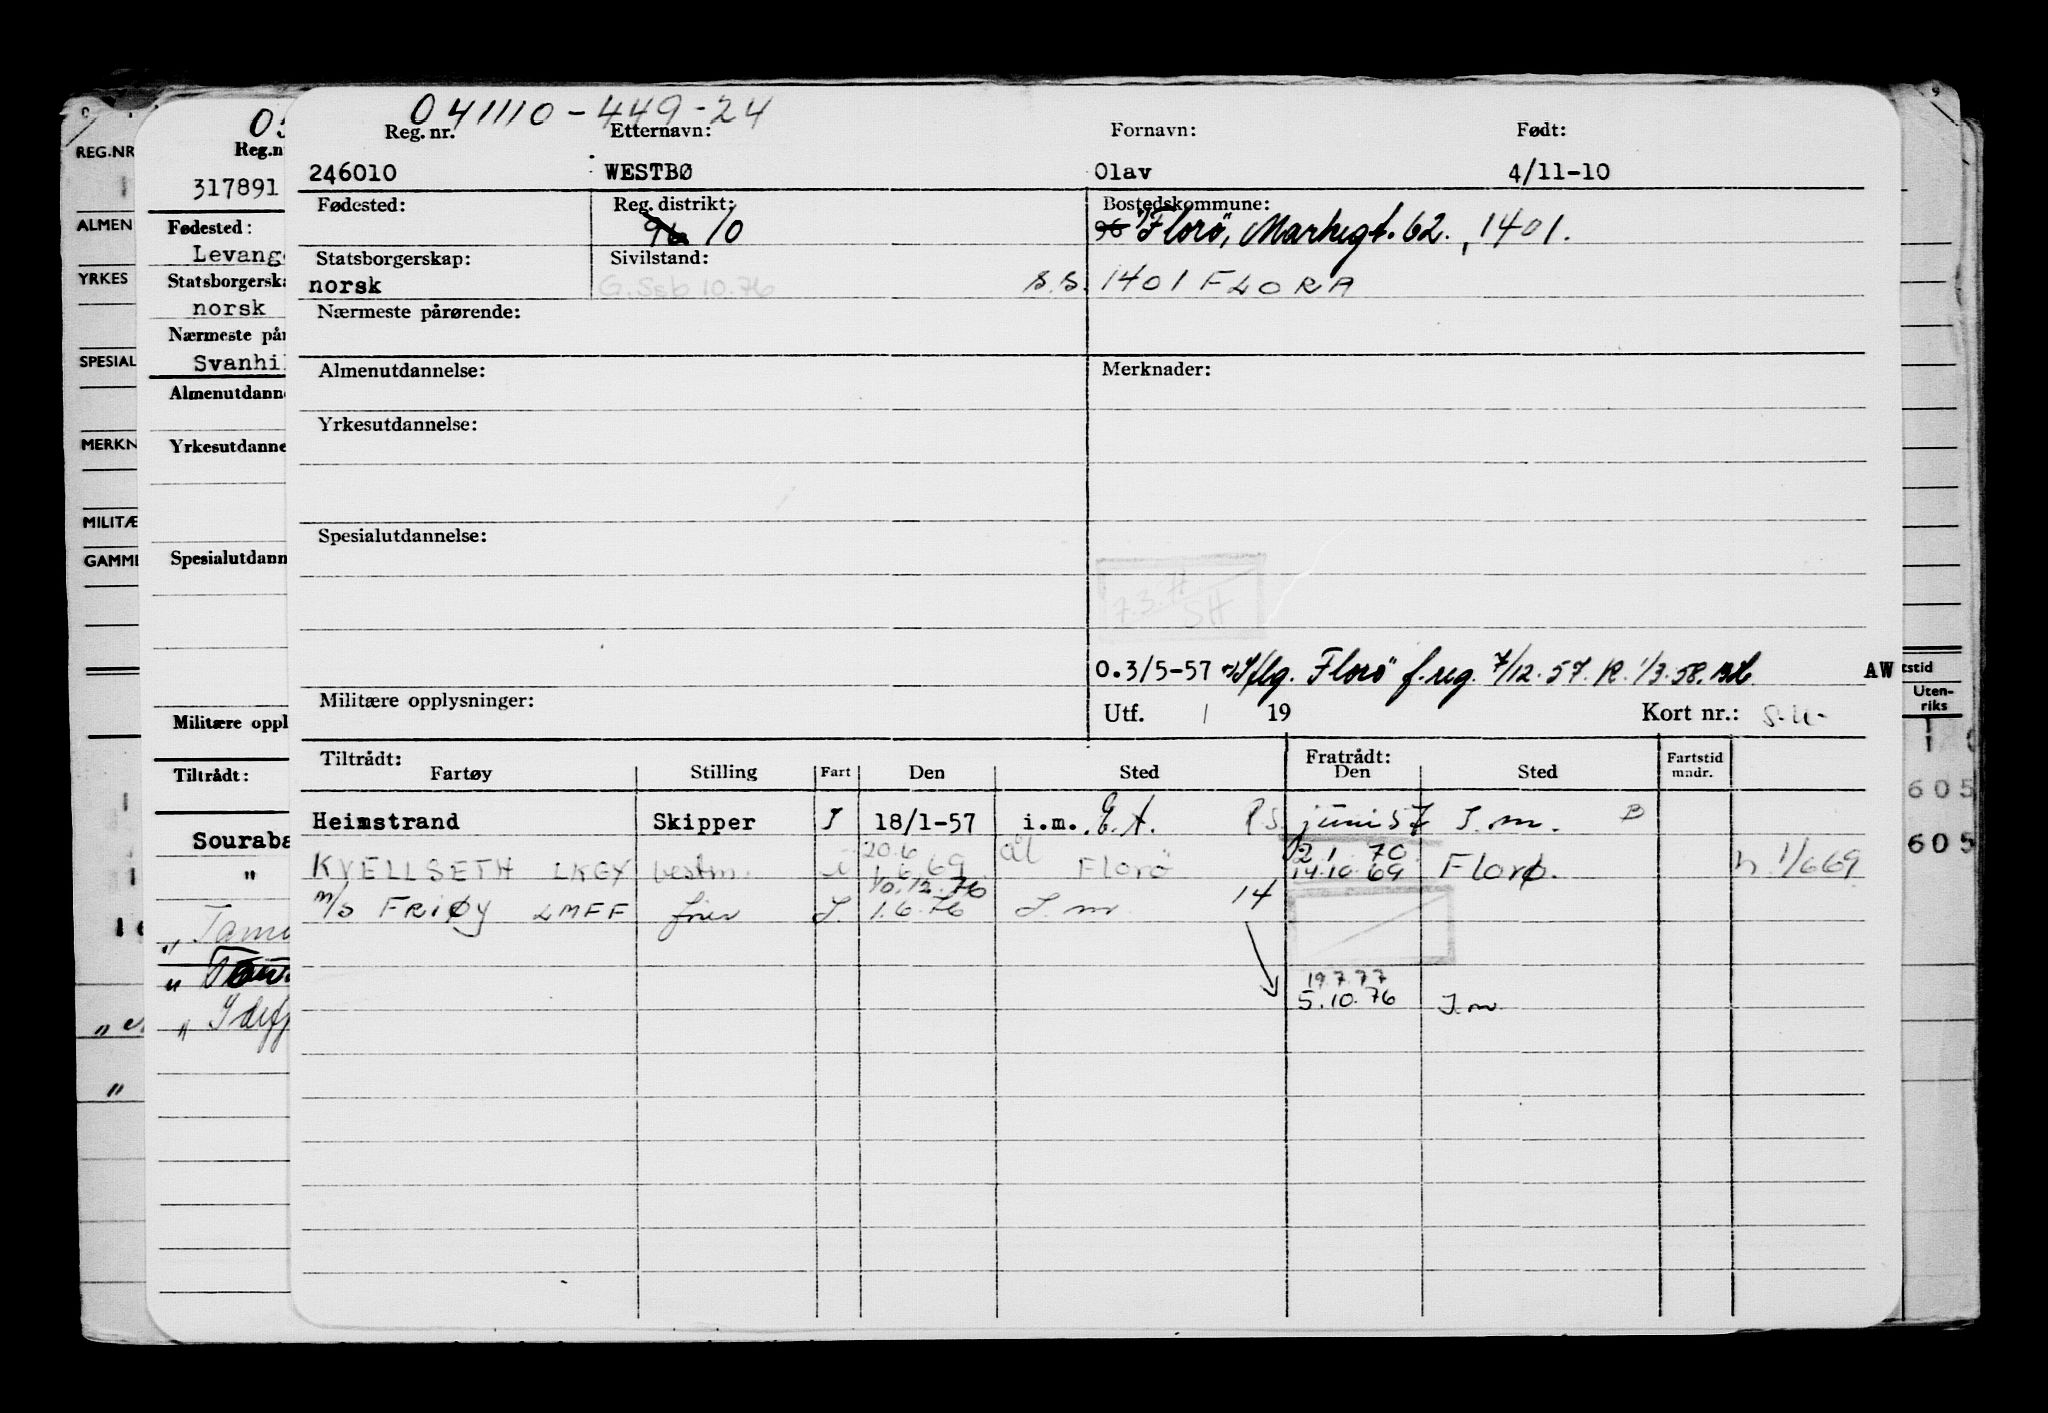 041110-449-24
Reg. nr. Etternavn: Fornavn: Født:
246010 WESTBØ Olav 4/11-10
Fødested: Reg. distrikt: Bostedskommune:
96 10 96 Florö, Markegt. 62., 1401.
Statsborgerskap: Sivilstand:
norsk G.Seb 10.76 s.s. 1401 FLORA
Nærmeste pårørende:
Almenutdannelse: Merknader:
Yrkesutdannelse:
Spesialutdannelse:
7.3.71
SH
O.3/5-57 Iflg. Florö f.reg. 7/12.57. K. 1/3.58. AW
Militære opplysninger: Utf. / 19 Kort nr.:
Tiltrådt: Fratrådt: Fartstid mndr.
Fartøy Stilling Fart Den Sted Den Sted
Heimstrand Skipper I 18/1-57 i.m. E.A. juni 57 I.m. B
20.6 2.1 70
KVELLSETH LKGY bestm. i 1.6.69 Florö 14.10 69 Florø. n. 1/669
10.12.76
M/S FRIØY LMFF I. 1.6.76 I.m 14
19.7.77
5.10.76 I.m
REG.NR
ALMEN
YRKES
SPESIAL
MERKN
MILITÆ
GAMME
Reg.n
317891
Fødested:
Levang
Statsborgerska
norsk
Nærmeste pår
Svanhil
Almenutdann
Yrkesutdanne
Spesialutdann
Militære oppl
Tiltrådt:
Souraba
"
"
"
"
"
"
tstid
Uten-
riks
605
605